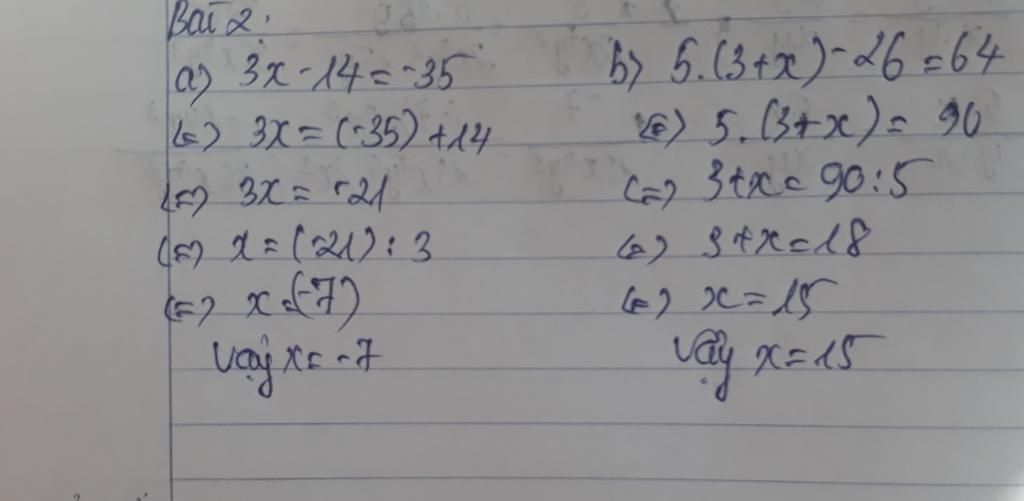 Bài 2:
a) 3x - 14 = -35
(=) 3x = (-35) + 14
(=) 3x = -21
(=) x = (-21) : 3
(=) x = (-7)
Vậy x = -7
b) 5.(3+x) - 26 = 64
(=) 5.(3+x) = 90
(=) 3+x = 90:5
(=) 3+x = 18
(=) x = 15
Vậy x = 15